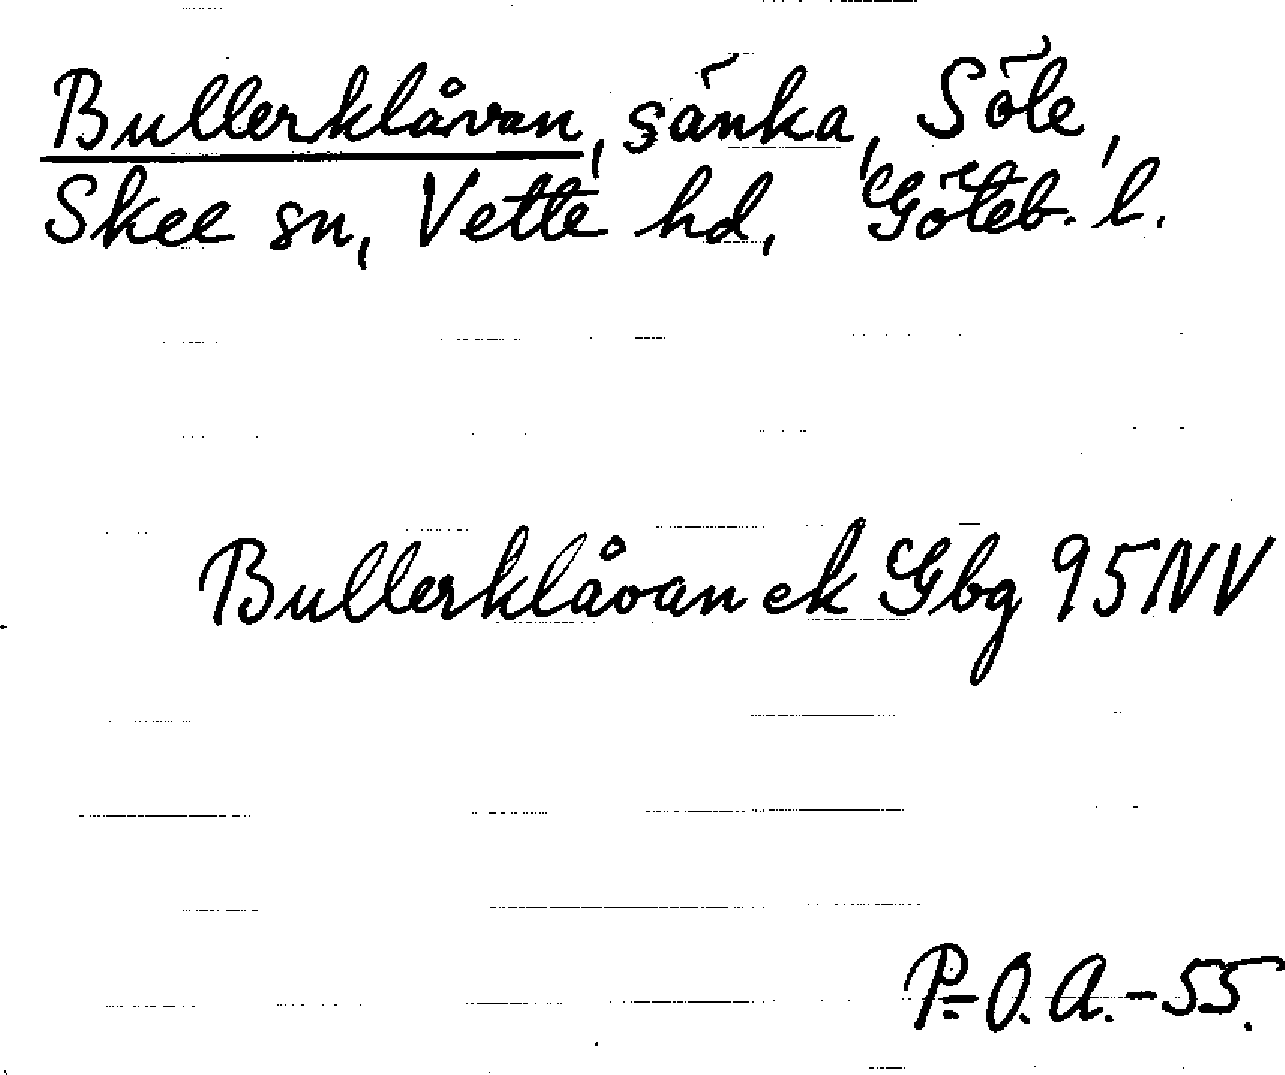 Bullerklåvan, sänka, Söle,
Skee sn, Vette hd, Göteb. l.
Bullerklåvan ek Gbg 95 NV
P-O. A. - 55.